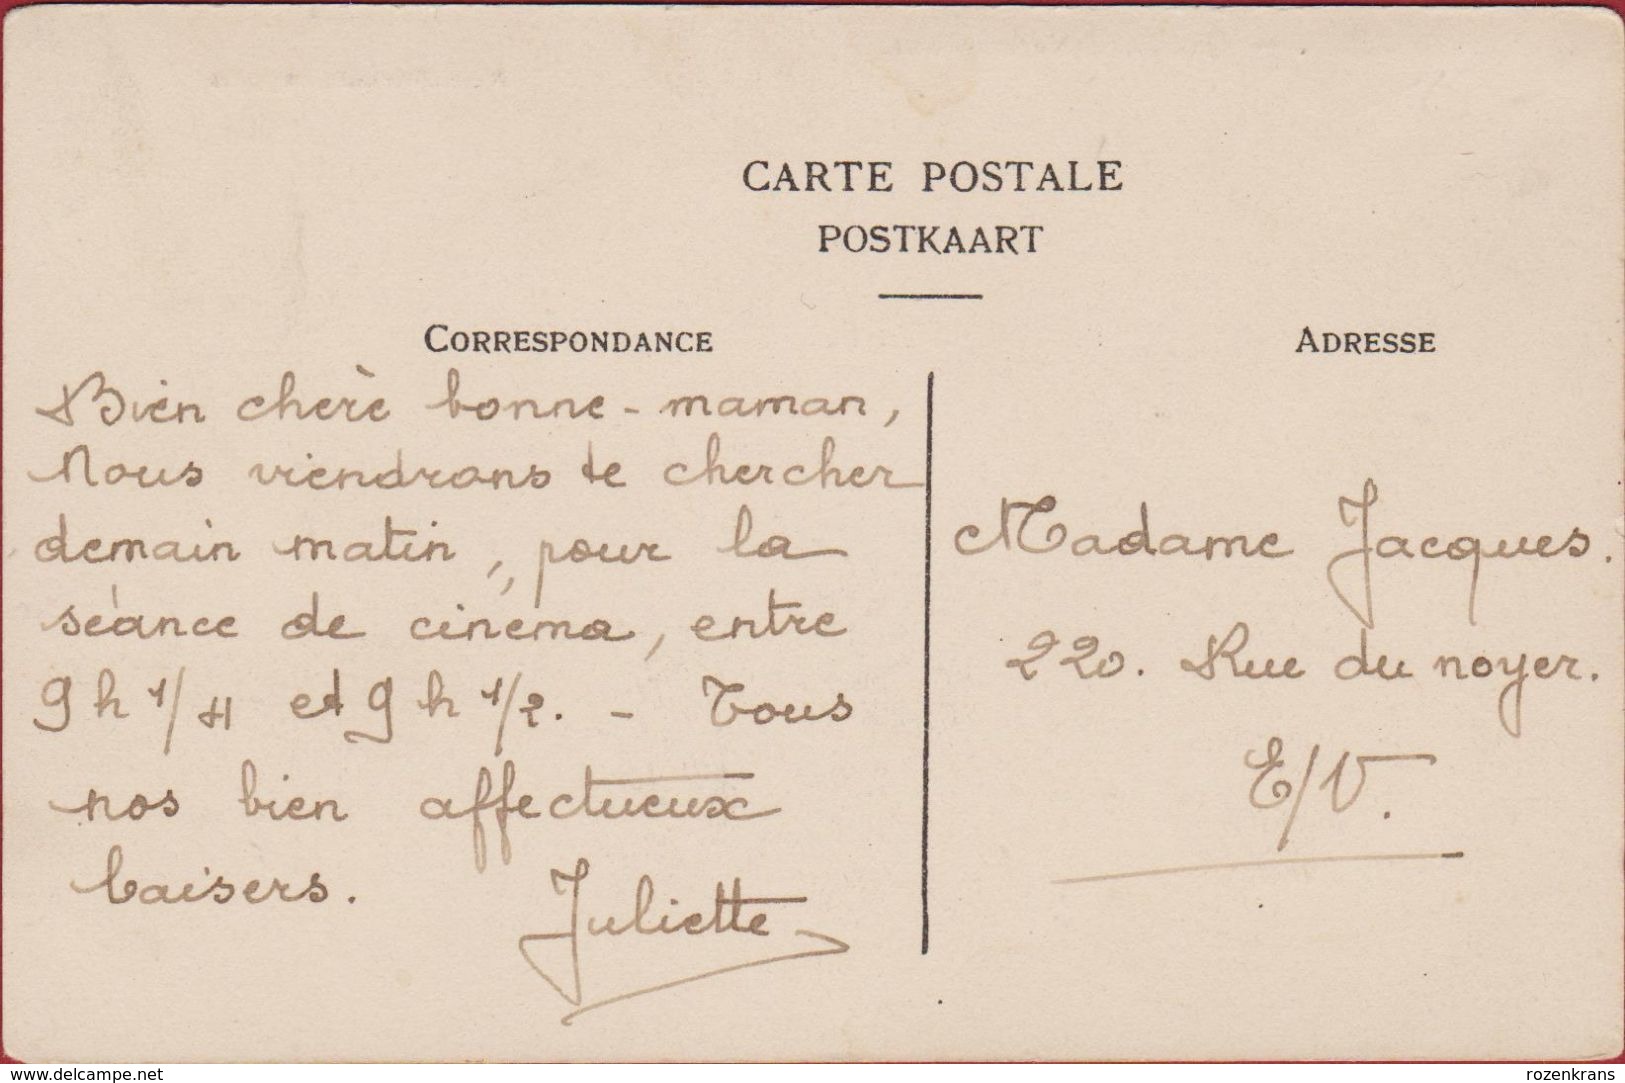 CARTE POSTALE
POSTKAART
CORRESPONDANCE
ADRESSE
Bien chère bonne-maman,
Nous viendrons te chercher
demain matin, pour la
séance de cinema, entre
9 h 1/4 et 9 h 1/2. - Tous
nos bien affectueux
baisers.
Juliette
Madame Jacques.
220. Rue du noyer.
E/V.
www.delcampe.net
rozenkrans